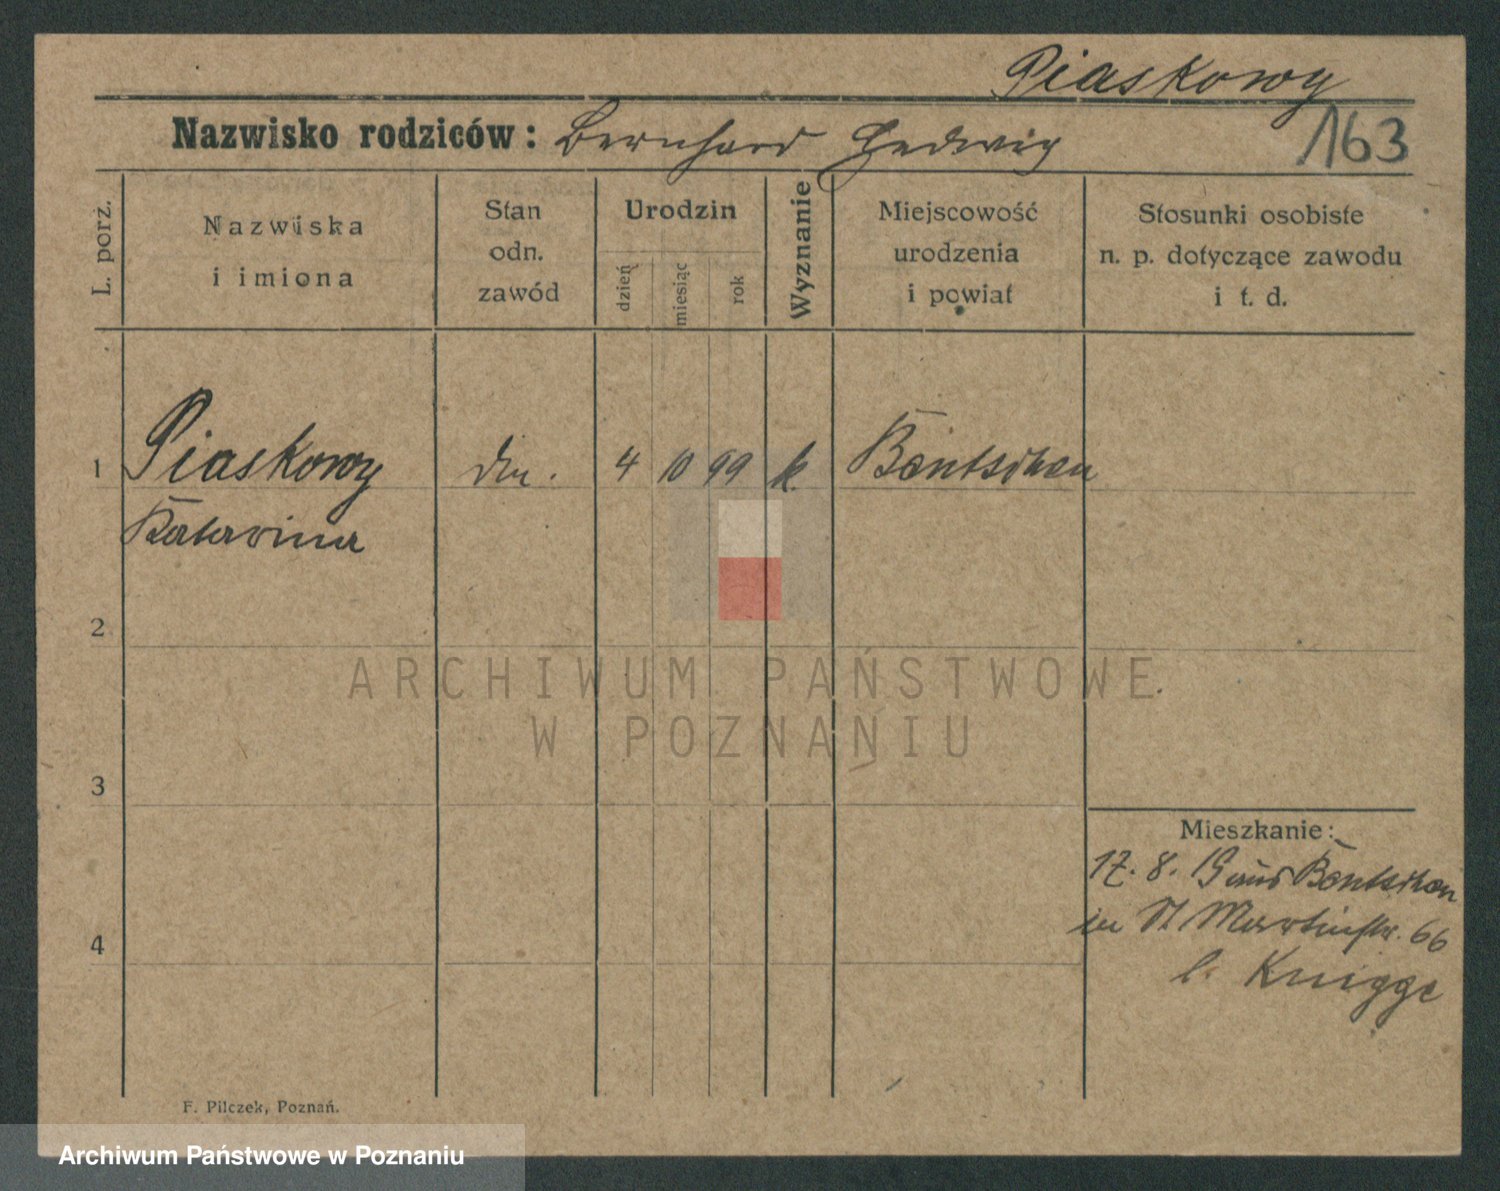 Piaskowy
Nazwisko rodziców: Bernhard Hedwig
163
L. porż.
Nazwiska
i imiona
Stan
odn.
zawód
Urodzin
dzień
miesiąc
rok
Wyznanie
Miejscowość
urodzenia
i powiat
Stosunki osobiste
n. p. dotyczące zawodu
i t. d.
1 Piaskowy 4 10 99 k. Bentschen
Katarina
2
3
4
Mieszkanie:
17. 8. Bentschen
in St Martinstr. 66
b. Knigge
F. Pilczek, Poznań.
ARCHIWUM PAŃSTWOWE
W POZNANIU
Archiwum Państwowe w Poznaniu